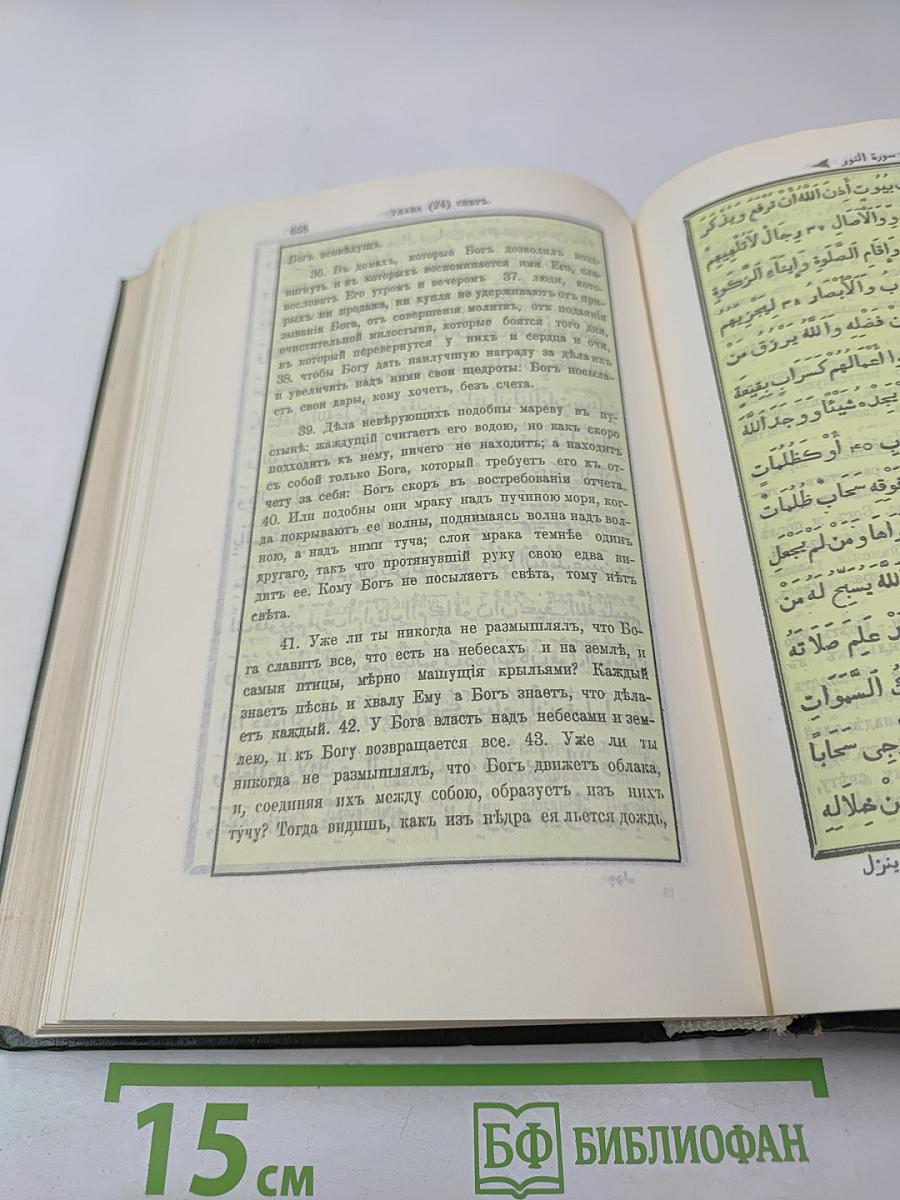 668
ГЛАВА (24) СВѢТЪ.
Богъ всевѣдущъ.
36. Въ домахъ, которые Богъ дозволилъ возд-
вигнуть и въ которыхъ воспоминается имя Его, сла-
вословитъ Его утромъ и вечеромъ 37. люди, кото-
рыхъ ни продажа, ни купля не удерживаютъ отъ при-
зыванія Бога, отъ совершенія молитвъ, отъ подаянія
очистительной милостыни, которые боятся того дня,
въ который перевернутся у нихъ и сердца и очи,
38. чтобы Богу дать наилучшую награду за дѣла ихъ
и увеличить надъ ними свои щедроты: Богъ посыла-
етъ свои дары, кому хочетъ, безъ счета.
39. Дѣла невѣрующихъ подобны мареву въ пу-
стынѣ: жаждущій считаетъ его водою, но какъ скоро
подходитъ къ нему, ничего не находитъ; а находитъ
съ собой только Бога, который требуетъ его къ от-
чету за себя: Богъ скоръ въ востребованіи отчета.
40. Или подобны они мраку надъ пучиною моря, ког-
да покрываютъ ее волны, поднимаясь волна надъ вол-
ною, а надъ ними туча; слои мрака темнѣе одинъ
другаго, такъ что протянувшій руку свою едва ви-
дитъ ее: Кому Богъ не посылаетъ свѣта, тому нѣтъ
свѣта.
41. Уже ли ты никогда не размышлялъ, что Бо-
га славитъ все, что есть на небесахъ и на землѣ, и
самыя птицы, мѣрно машущія крыльями? Каждый
знаетъ пѣснь и хвалу Ему а Богъ знаетъ, что дѣла-
етъ каждый. 42. У Бога власть надъ небесами и зем-
лею, и къ Богу возвращается все. 43. Уже ли ты
никогда не размышлялъ, что Богъ движетъ облака,
и, соединяя ихъ между собою, образуетъ изъ нихъ
тучу? Тогда видишь, какъ изъ нѣдра ея льется дождь,
سورة النور
بيوت أذن الله أن ترفع ويذكر
والآصال ٣٧ رجال لا تلهيهم
وإقام الصلوة وإيتاء الزكوة
والأبصار ٣٨ ليجزيهم
فضله والله يرزق من
أعمالهم كسراب بقيعة
يجده شيئا ووجد الله
أو كظلمات
فوقه سحاب ظلمات
ومن لم يجعل
يسبح له من
علم صلاته
السموات
سحابا
خلاله
ينزل
15 см
БФ БИБЛИОФАН